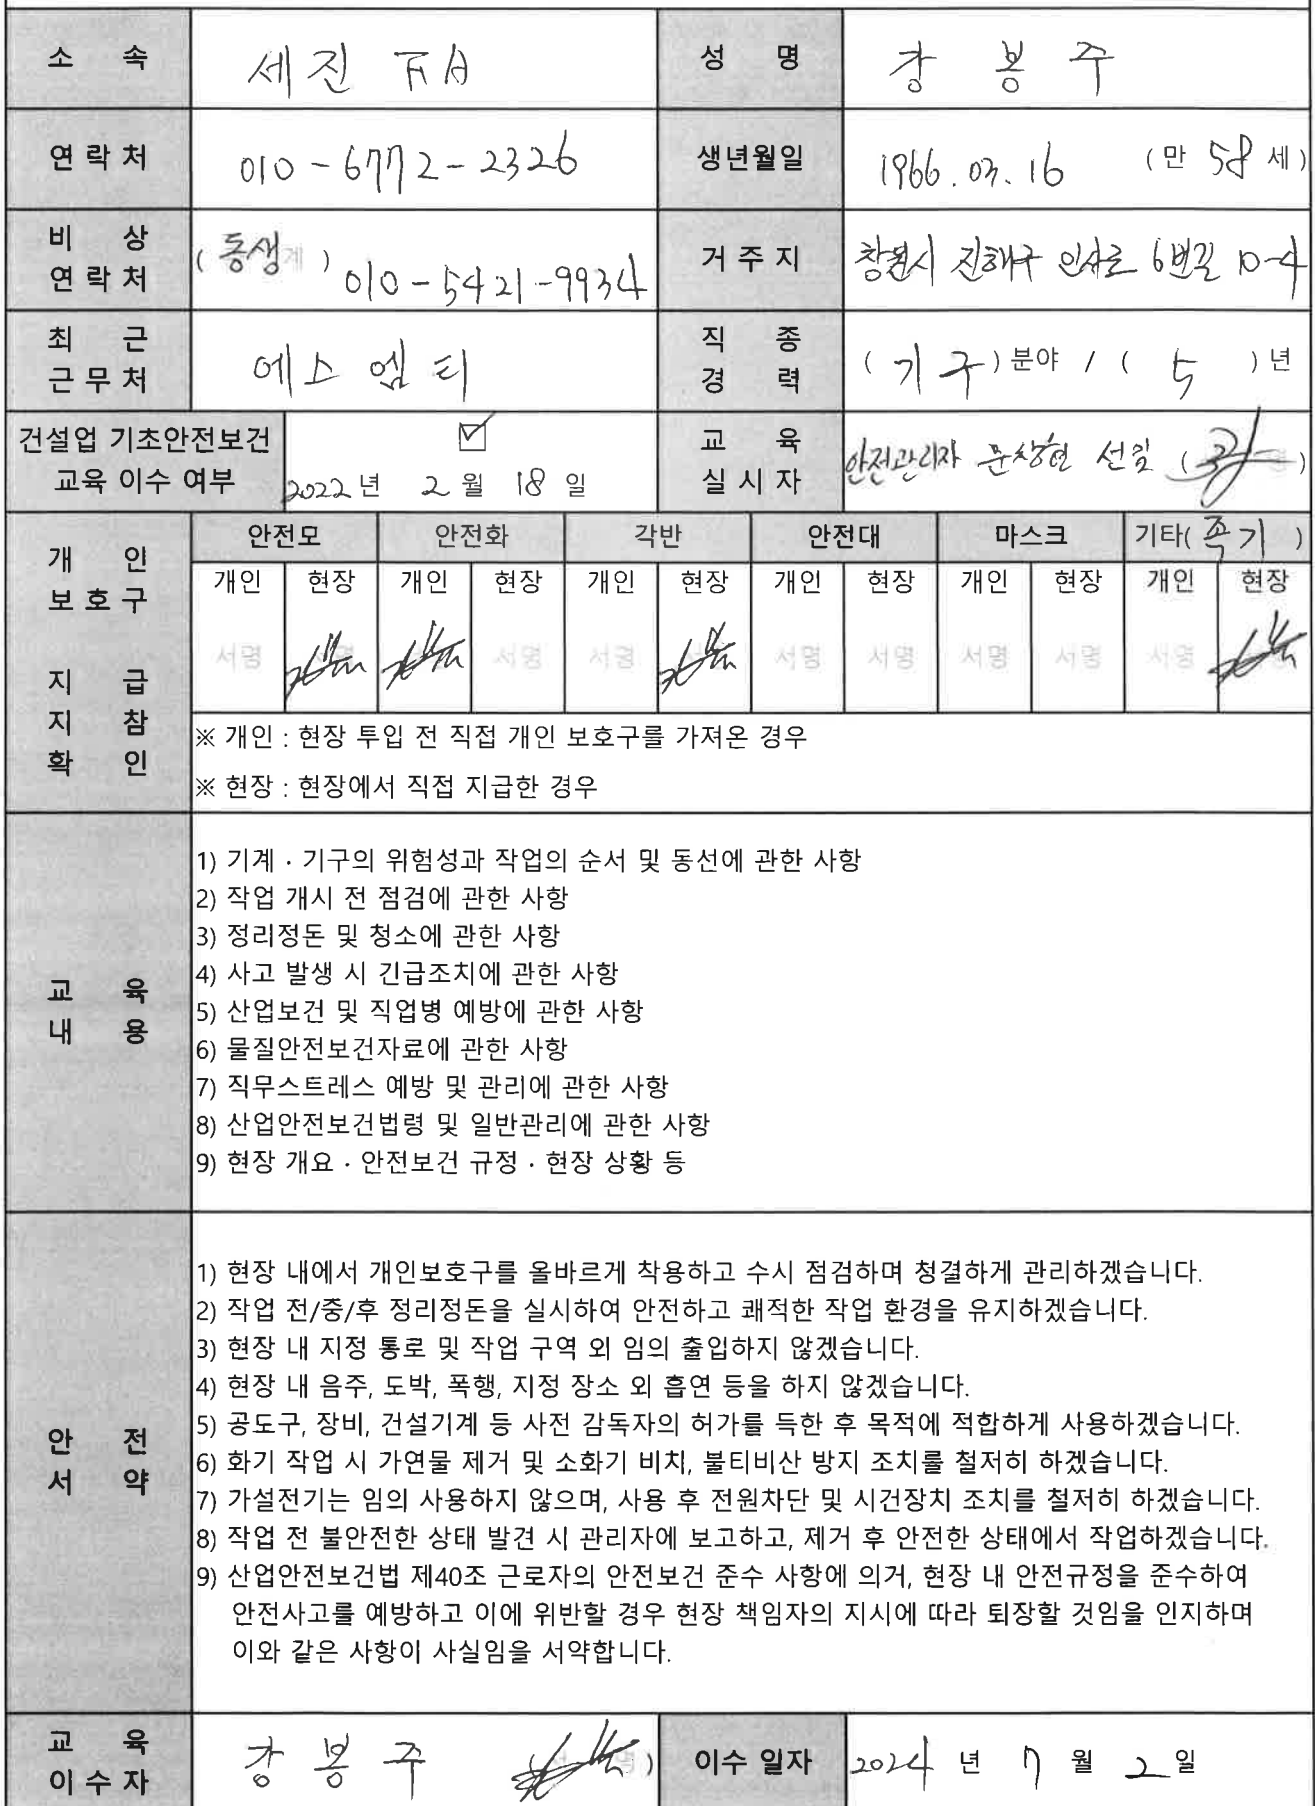 소 속 세진 FA 성 명 강 봉 주
연 락 처 010-6772-2326 생년월일 1966. 03. 16 (만 58 세)
비 상 연 락 처 (동생계) 010-5421-9934 거 주 지 창원시 진해구 인사로 6번길 10-4
최 근 근 무 처 에스엠티 직 종 경 력 (기구)분야 / ( 5 )년
건설업 기초안전보건
교육 이수 여부 ☑ 2022년 2월 18일 교 육 실 시 자 안전관리자 문상현 선임 ( )
개 인 보 호 구 지 급 지 참 확 인
안전모 안전화 각반 안전대 마스크 기타(족기)
개인 현장 개인 현장 개인 현장 개인 현장 개인 현장 개인 현장
서명 서명 서명 서명 서명 서명 서명 서명
※ 개인 : 현장 투입 전 직접 개인 보호구를 가져온 경우
※ 현장 : 현장에서 직접 지급한 경우
교 육 내 용
1) 기계 · 기구의 위험성과 작업의 순서 및 동선에 관한 사항
2) 작업 개시 전 점검에 관한 사항
3) 정리정돈 및 청소에 관한 사항
4) 사고 발생 시 긴급조치에 관한 사항
5) 산업보건 및 직업병 예방에 관한 사항
6) 물질안전보건자료에 관한 사항
7) 직무스트레스 예방 및 관리에 관한 사항
8) 산업안전보건법령 및 일반관리에 관한 사항
9) 현장 개요 · 안전보건 규정 · 현장 상황 등
안 전 서 약
1) 현장 내에서 개인보호구를 올바르게 착용하고 수시 점검하며 청결하게 관리하겠습니다.
2) 작업 전/중/후 정리정돈을 실시하여 안전하고 쾌적한 작업 환경을 유지하겠습니다.
3) 현장 내 지정 통로 및 작업 구역 외 임의 출입하지 않겠습니다.
4) 현장 내 음주, 도박, 폭행, 지정 장소 외 흡연 등을 하지 않겠습니다.
5) 공도구, 장비, 건설기계 등 사전 감독자의 허가를 득한 후 목적에 적합하게 사용하겠습니다.
6) 화기 작업 시 가연물 제거 및 소화기 비치, 불티비산 방지 조치를 철저히 하겠습니다.
7) 가설전기는 임의 사용하지 않으며, 사용 후 전원차단 및 시건장치 조치를 철저히 하겠습니다.
8) 작업 전 불안전한 상태 발견 시 관리자에 보고하고, 제거 후 안전한 상태에서 작업하겠습니다.
9) 산업안전보건법 제40조 근로자의 안전보건 준수 사항에 의거, 현장 내 안전규정을 준수하여
안전사고를 예방하고 이에 위반할 경우 현장 책임자의 지시에 따라 퇴장할 것임을 인지하며
이와 같은 사항이 사실임을 서약합니다.
교 육 이 수 자 강 봉 주 (서 명) 이수 일자 2024 년 7 월 2 일